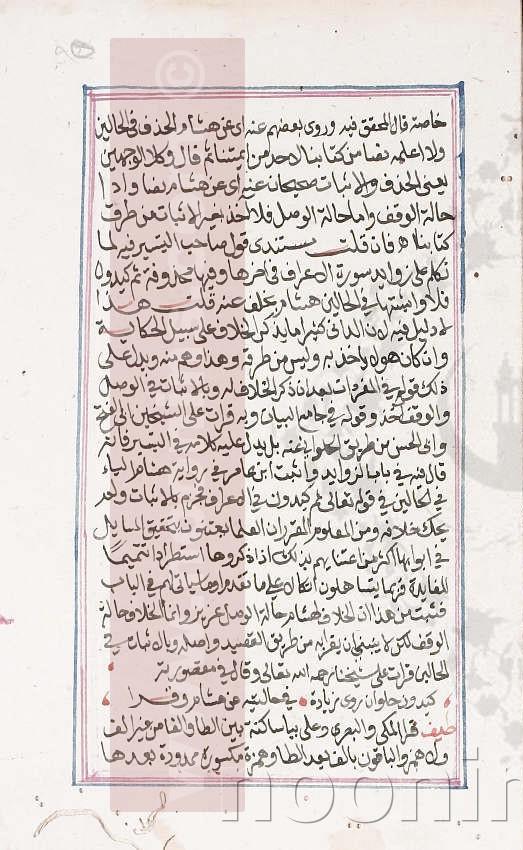 خاصة قال المحقق فيه وروى بعضهم عنه اى عن هشام الحذف فى الحالين
ولا اعلمه نصا من كتابنا لاحد من ائمتنا ثم قال وكلا الوجهين
يعنى الحذف والاثبات صحيحان عنه اى عن هشام نصا واداء
حالة الوقف واما حالة الوصل فلا اخذ بغير الاثبات من طرق
كتابنا فان قلت مستندى قول صاحب التيسير فيه لما
تكلم على زوايد سورة الاعراف فى آخرها وفيها محذوفة ثم كيدون
فلا واثبتها فى الحالين هشام بخلف عنه قلت هذا
لا دليل فيه لان الدانى كثيرا ما يذكر الخلاف على سبيل الحكاية
وان كان هو لا ياخذ به وليس من طرقه وهذا منه ويدل على
ذلك قوله فى المفردات بعد ان ذكر الخلاف له وبالاثبات فى الوصل
والوقف اخذ وقوله فى جامع البيان وبه قرات على الشيخين ابى الفتح
وابى الحسن من طريق الحلوانى عنه بل يدل عليه كلامه فى التيسير فانه
قال فيه فى باب الزوايد واثبت ابن عامر فى رواية هشام الياء
فى الحالين فى قوله تعالى ثم كيدون فى الاعراف فجزم بالاثبات ولم
يحك خلافه ومن المعلوم المقرر ان العلماء يعتنون بتحقيق المسايل
فى ابوابها اكثر من اعتنايهم بذلك اذا ذكروها استطرادا تتميما
للفايدة فربما يتساهلون اتكالا على ما تقدم او ما سياتى لهم فى الباب
فثبت من هذا ان الخلاف لهشام حالة الوصل عزيز وانما الخلاف حالة
الوقف لكن لا ينبغى ان يقرا به من طريق القصيد واصله وبالاثبات فى
الحالين قرات على شيخنا رحمه الله تعالى وقال فى مقصورته
كيدون حلوان روى زيادة فى حالتيه عن هشام وقرا
طيف قرا المكى والبصرى وعلى بياء ساكنة بين الطاء والفا من غير الف
ولا همز والباقون بالف بعد الطا وهمزة مكسورة ممدودة بعدها
noorin